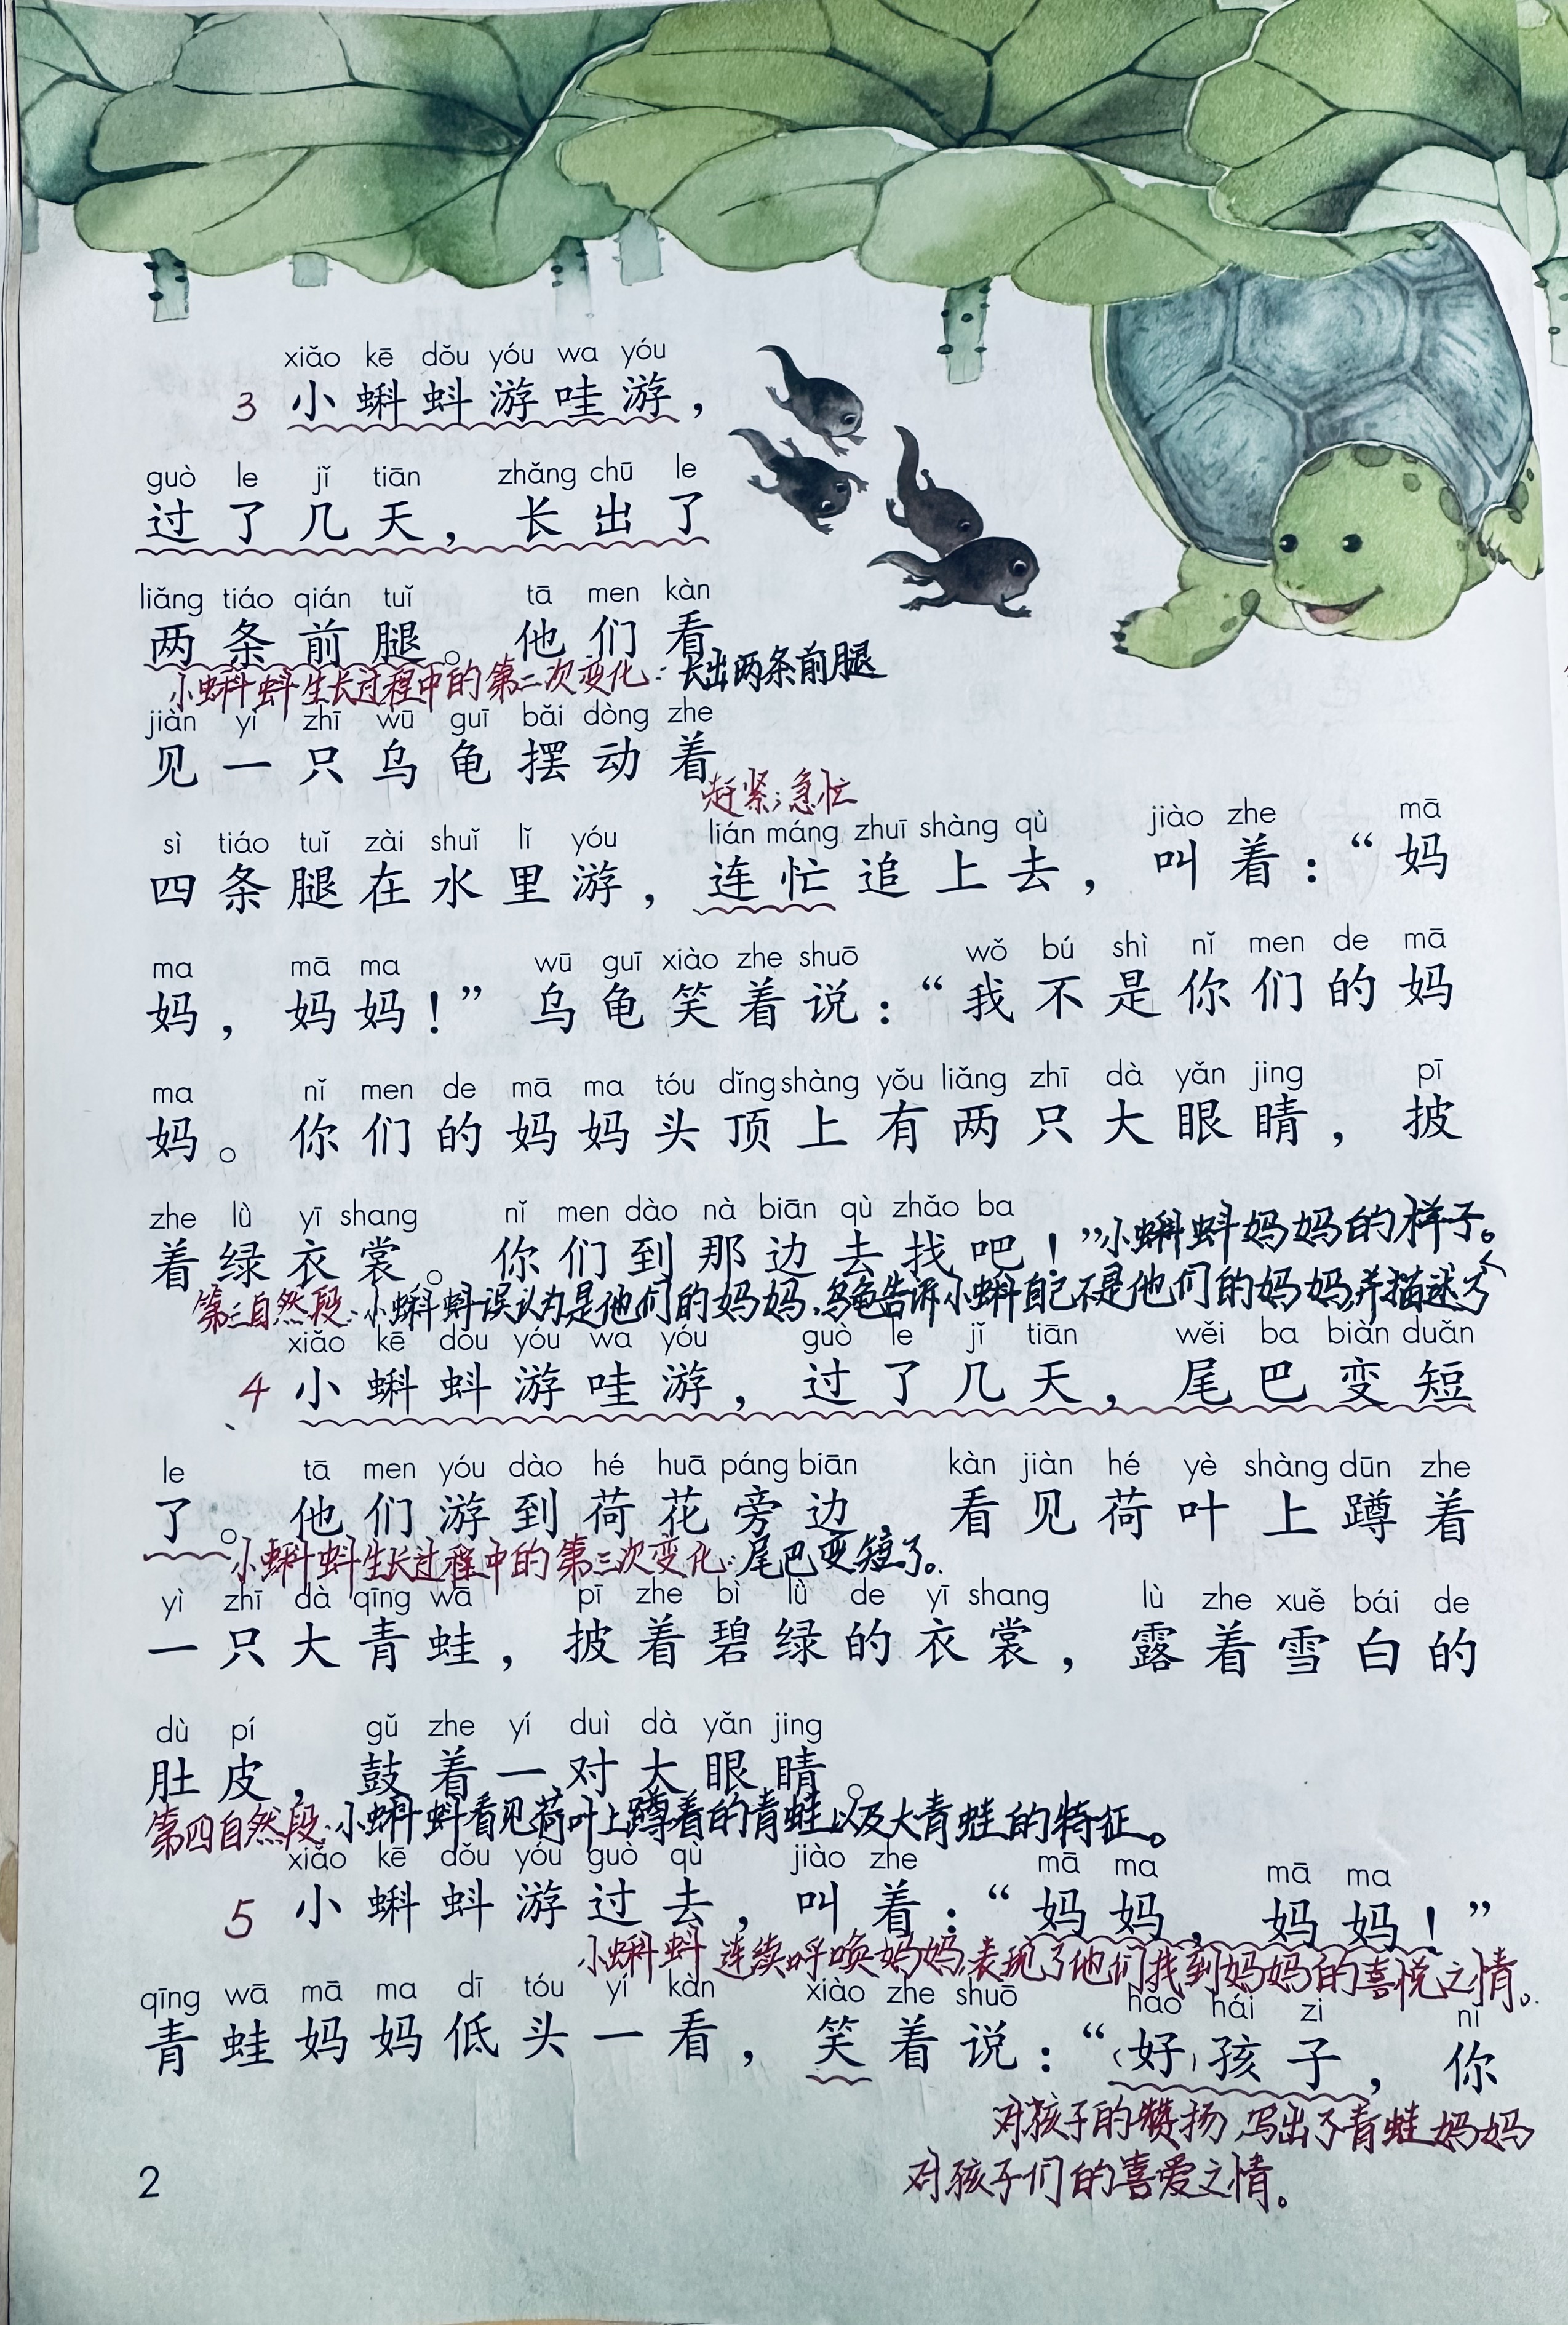 xiǎo kē dǒu yóu wa yóu
3 小蝌蚪游哇游，
guò le jǐ tiān zhǎng chū le
过了几天，长出了
liǎng tiáo qián tuǐ tā men kàn
两条前腿。他们看
小蝌蚪生长过程中的第二次变化：长出两条前腿
jiàn yì zhī wū guī bǎi dòng zhe
见一只乌龟摆动着
赶紧；急忙
sì tiáo tuǐ zài shuǐ lǐ yóu lián máng zhuī shàng qù jiào zhe mā
四条腿在水里游，连忙追上去，叫着：“妈
ma mā ma wū guī xiào zhe shuō wǒ bú shì nǐ men de mā
妈，妈妈！”乌龟笑着说：“我不是你们的妈
ma nǐ men de mā ma tóu dǐng shàng yǒu liǎng zhī dà yǎn jing pī
妈。你们的妈妈头顶上有两只大眼睛，披
zhe lǜ yī shang nǐ men dào nà biān qù zhǎo ba
着绿衣裳。你们到那边去找吧！”小蝌蚪妈妈的样子。
第三自然段：小蝌蚪误认为是他们的妈妈，乌龟告诉小蝌自己不是他们的妈妈，并描述了
xiǎo kē dǒu yóu wa yóu guò le jǐ tiān wěi ba biàn duǎn
4 小蝌蚪游哇游，过了几天，尾巴变短
le tā men yóu dào hé huā páng biān kàn jiàn hé yè shàng dūn zhe
了。他们游到荷花旁边，看见荷叶上蹲着
小蝌蚪生长过程中的第三次变化：尾巴变短了。
yì zhī dà qīng wā pī zhe bì lǜ de yī shang lù zhe xuě bái de
一只大青蛙，披着碧绿的衣裳，露着雪白的
dù pí gǔ zhe yí duì dà yǎn jing
肚皮，鼓着一对大眼睛。
第四自然段：小蝌蚪看见荷叶上蹲着的青蛙以及大青蛙的特征。
xiǎo kē dǒu yóu guò qù jiào zhe mā ma mā ma
5 小蝌蚪游过去，叫着：“妈妈，妈妈！”
小蝌蚪连续呼唤妈妈，表现了他们找到妈妈的喜悦之情。
qīng wā mā ma dī tóu yí kàn xiào zhe shuō hǎo hái zi nǐ
青蛙妈妈低头一看，笑着说：“（好）孩子，你
对孩子的赞扬，写出了青蛙妈妈
对孩子们的喜爱之情。
2